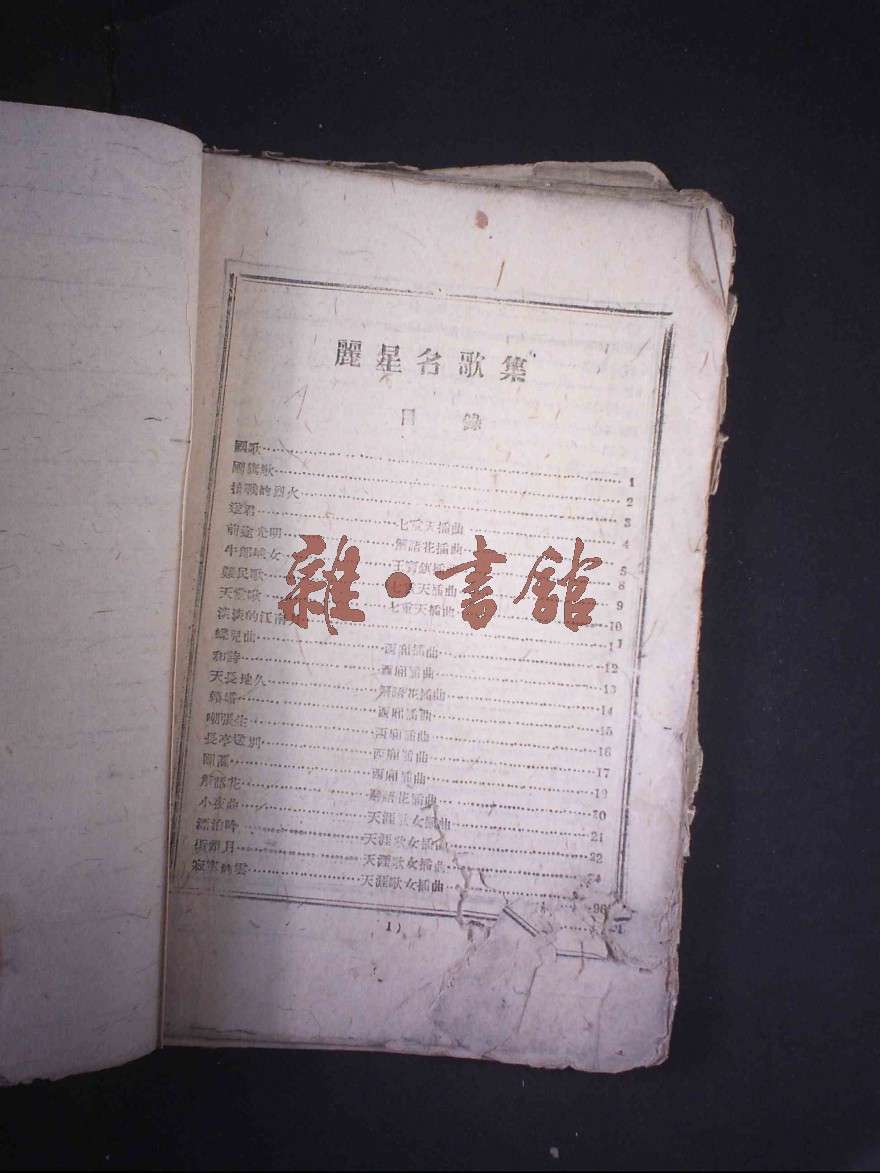 麗星名歌集
目錄
國歌……1
國旗歌……2
抗戰的烈火……3
送君……七重天插曲……4
前途光明……解語花插曲……5
牛郎織女……王寶釧插曲……8
難民歌……七重天插曲……9
天堂歌……七重天插曲……10
淡淡的江南月……11
蝶兒曲……西廂插曲……12
和詩……西廂插曲……13
天長地久……解語花插曲……14
西廂插曲……15
嘲張生……西廂插曲……16
長亭送別……西廂插曲……17
西廂插曲……19
解語花……解語花插曲……20
小夜曲……天涯歌女插曲……21
漂泊吟……天涯歌女插曲……22
月……天涯歌女插曲……4
寂寞的雲……天涯歌女插曲……
1)
雜·書館